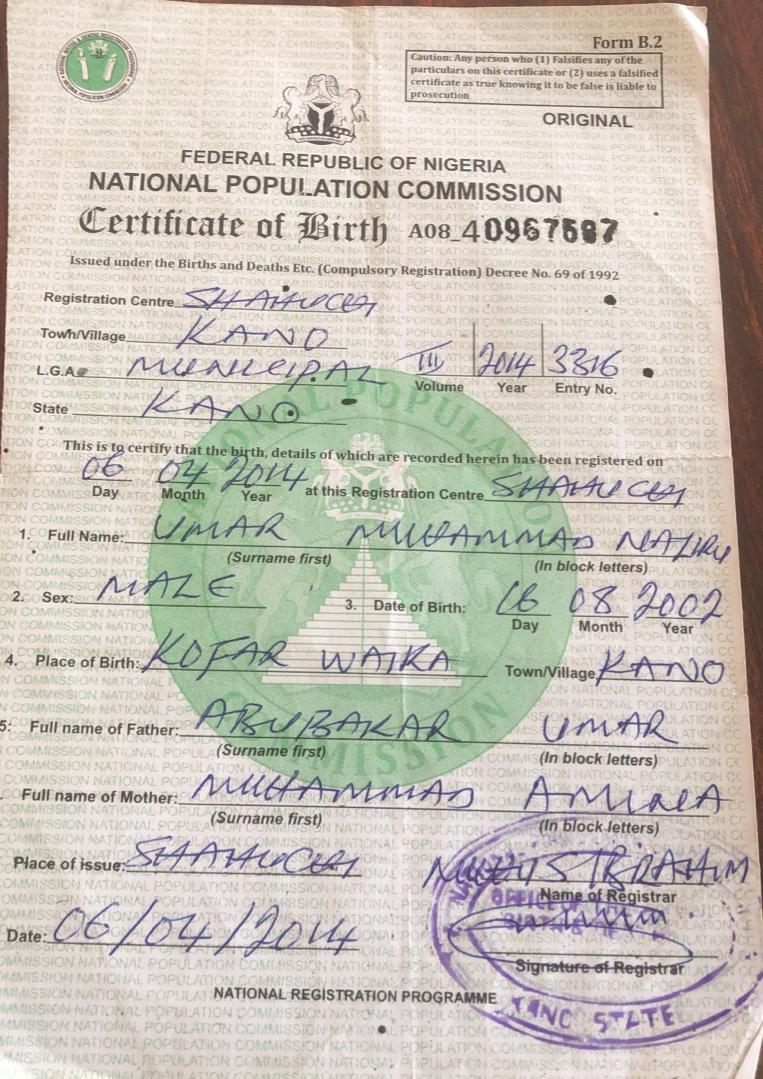 Form B.2
Caution: Any person who (1) Falsifies any of the
particulars on this certificate or (2) uses a falsified
certificate as true knowing it to be false is liable to
prosecution
ORIGINAL
FEDERAL REPUBLIC OF NIGERIA
NATIONAL POPULATION COMMISSION
Certificate of Birth A08_40967587
Issued under the Births and Deaths Etc. (Compulsory Registration) Decree No. 69 of 1992
Registration Centre SHAHUCHI
Town/Village KANO
L.G.A MUNICIPAL III 2014 3316
Volume Year Entry No.
State KANO
This is to certify that the birth, details of which are recorded herein has been registered on
06 04 2014 at this Registration Centre SHAHUCHI
Day Month Year
1. Full Name: UMAR MUHAMMAD NAZIRU
(Surname first) (In block letters)
2. Sex: MALE 3. Date of Birth: 16 08 2002
Day Month Year
4. Place of Birth: KOFAR WAIKA Town/Village KANO
5: Full name of Father: ABUBAKAR UMAR
(Surname first) (In block letters)
Full name of Mother: MUHAMMAD
(Surname first) (In block letters)
Place of issue: SHAHUCHI IBRAHIM
Name of Registrar
Date: 06/04/2014
Signature of Registrar
NATIONAL REGISTRATION PROGRAMME
STATE